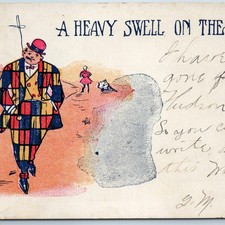 A HEAVY SWELL ON THE
I have
gone f
Hudson
So you c
write, a
this W
G.M.